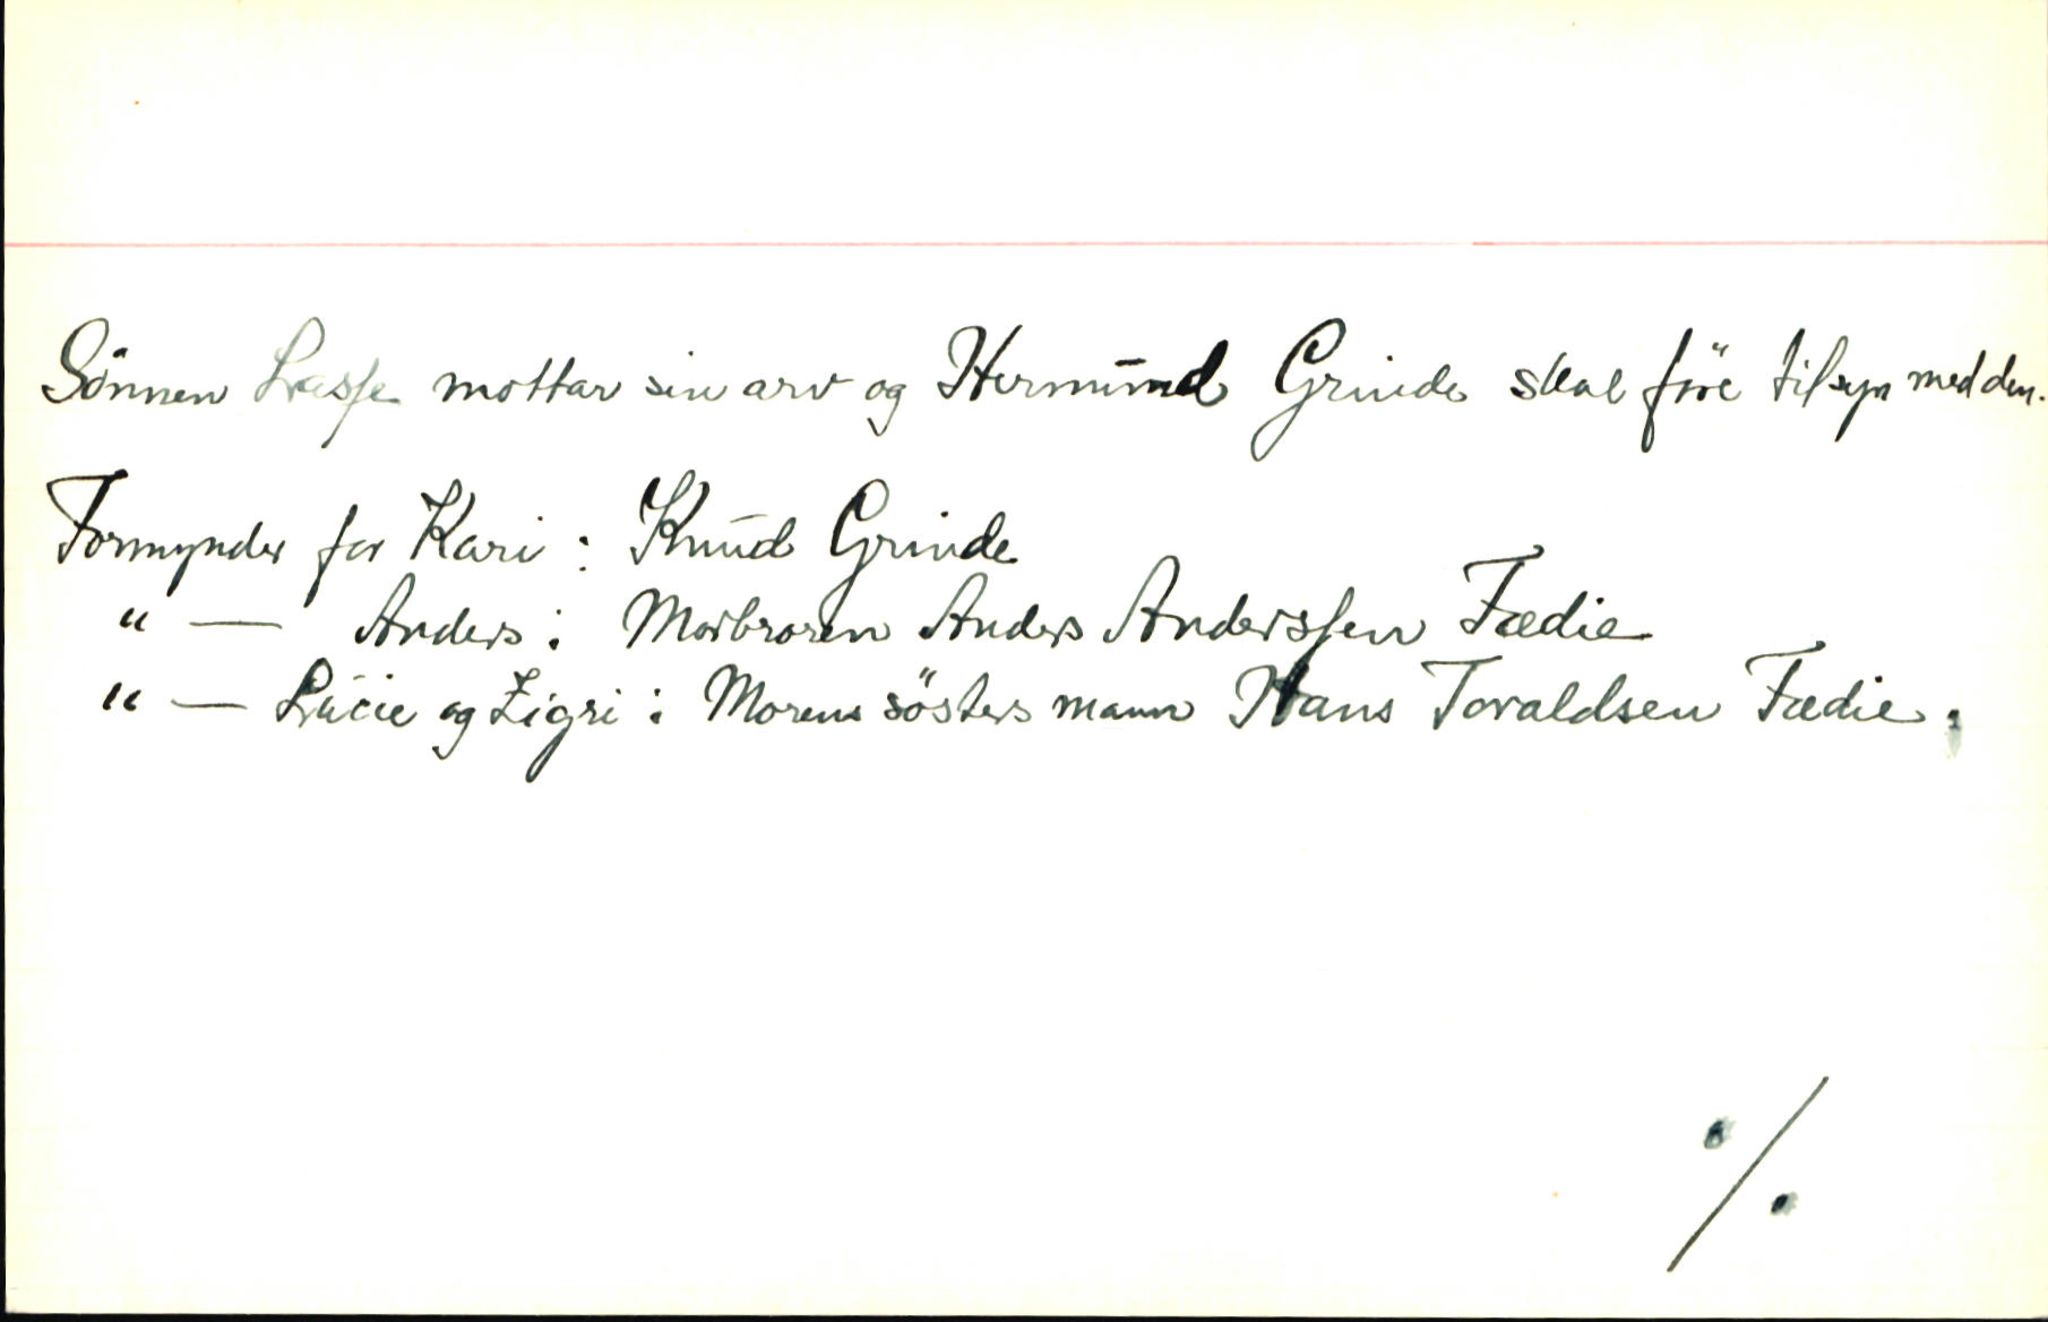 Sönnen Lasse mottar sin arv og Hermund Grinde skal före tilsyn med den.
Formynder for Kari : Knud Grinde
" — Anders : Morbroren Anders Anderssen Fædie
" — Lucie og Zigri : Morens sösters mann Hans Toraldsen Fædie.
·/.